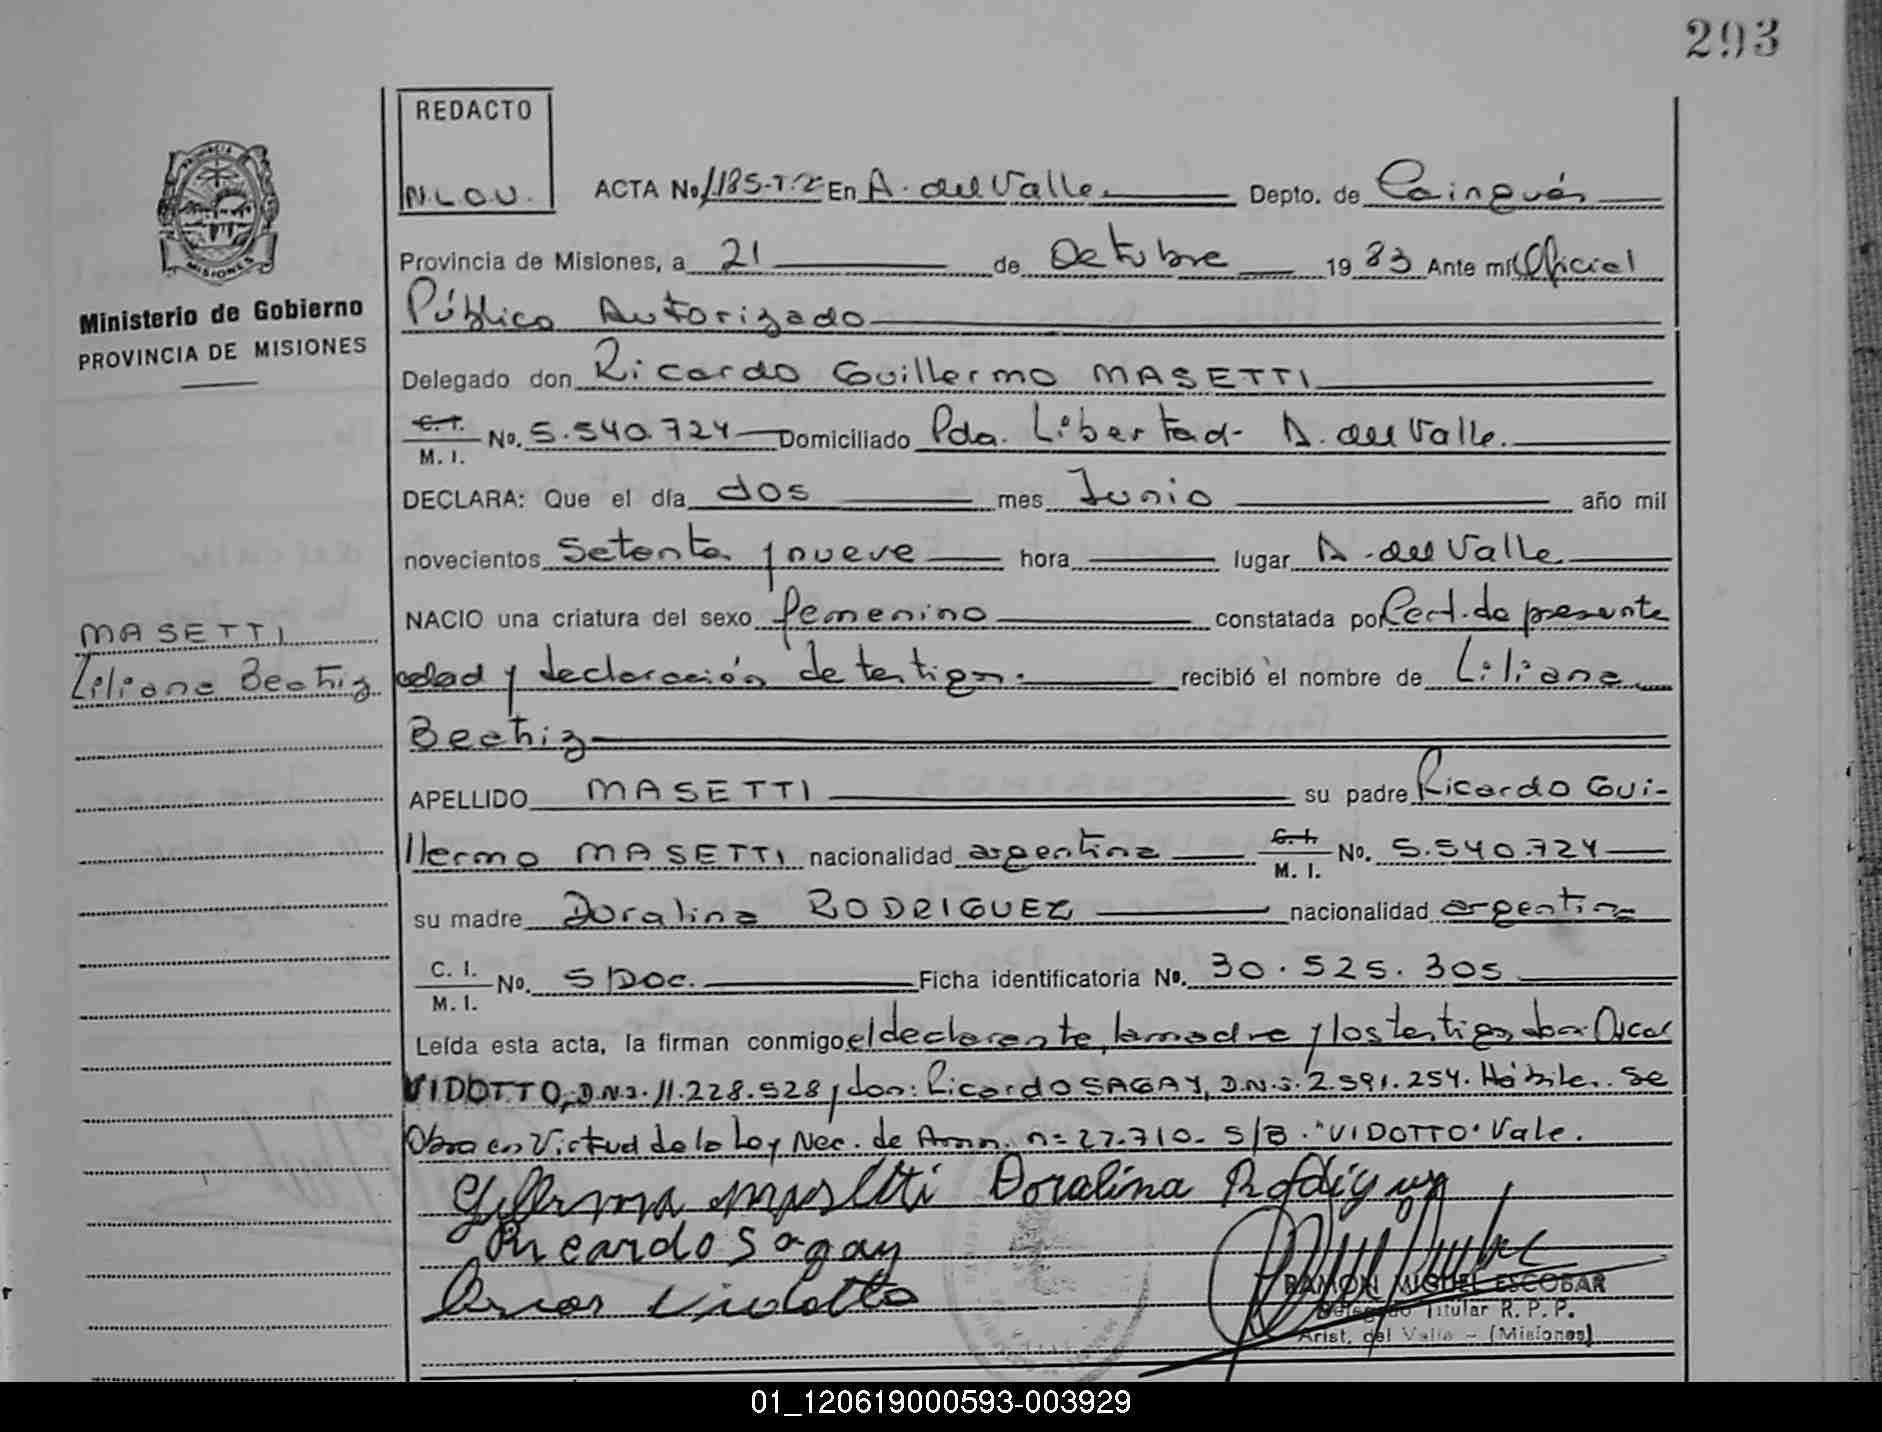 293
REDACTO
N.L.O.U.
ACTA No. 1185-T.2 En A. del Valle. Depto. de Cainguás
Provincia de Misiones, a 21 de Octubre 1983 Ante mí Oficial
Público Autorizado
Ministerio de Gobierno
PROVINCIA DE MISIONES
Delegado don Ricardo Guillermo MASETTI
C.I. M. I. No. 5.540.724 Domiciliado Pda. Libertad - A. del Valle.
DECLARA: Que el día dos mes Junio año mil
novecientos setenta y nueve hora lugar A. del Valle
NACIO una criatura del sexo femenino constatada por Cert. de presente
MASETTI
Liliana Beatriz
edad y declaración de testigos. recibió el nombre de Liliana
Beatriz
APELLIDO MASETTI su padre Ricardo Gui-
llermo MASETTI nacionalidad argentina C.I. M. I. No. 5.540.724
su madre Doralina RODRIGUEZ nacionalidad argentina
C. I. M. I. No. S/Doc. Ficha identificatoria No. 30.525.305
Leída esta acta, la firman conmigo el declarante, la madre y los testigos don: Oscar
VIDOTTO, D.N.I. 11.228.528 y don: Ricardo SAGAY, D.N.I. 2.591.254. Hábiles. Se
Obra en Virtud de la Ley Nac. de Amn. nº 22.710. S/B. "VIDOTTO" Vale.
Gillermo Masetti Doralina Rodriguez
Ricardo Sagay
Oscar Vidotto
RAMON MIGUEL ESCOBAR
Delegado Titular R. P. P.
Arist. del Valle - (Misiones)
01_120619000593-003929